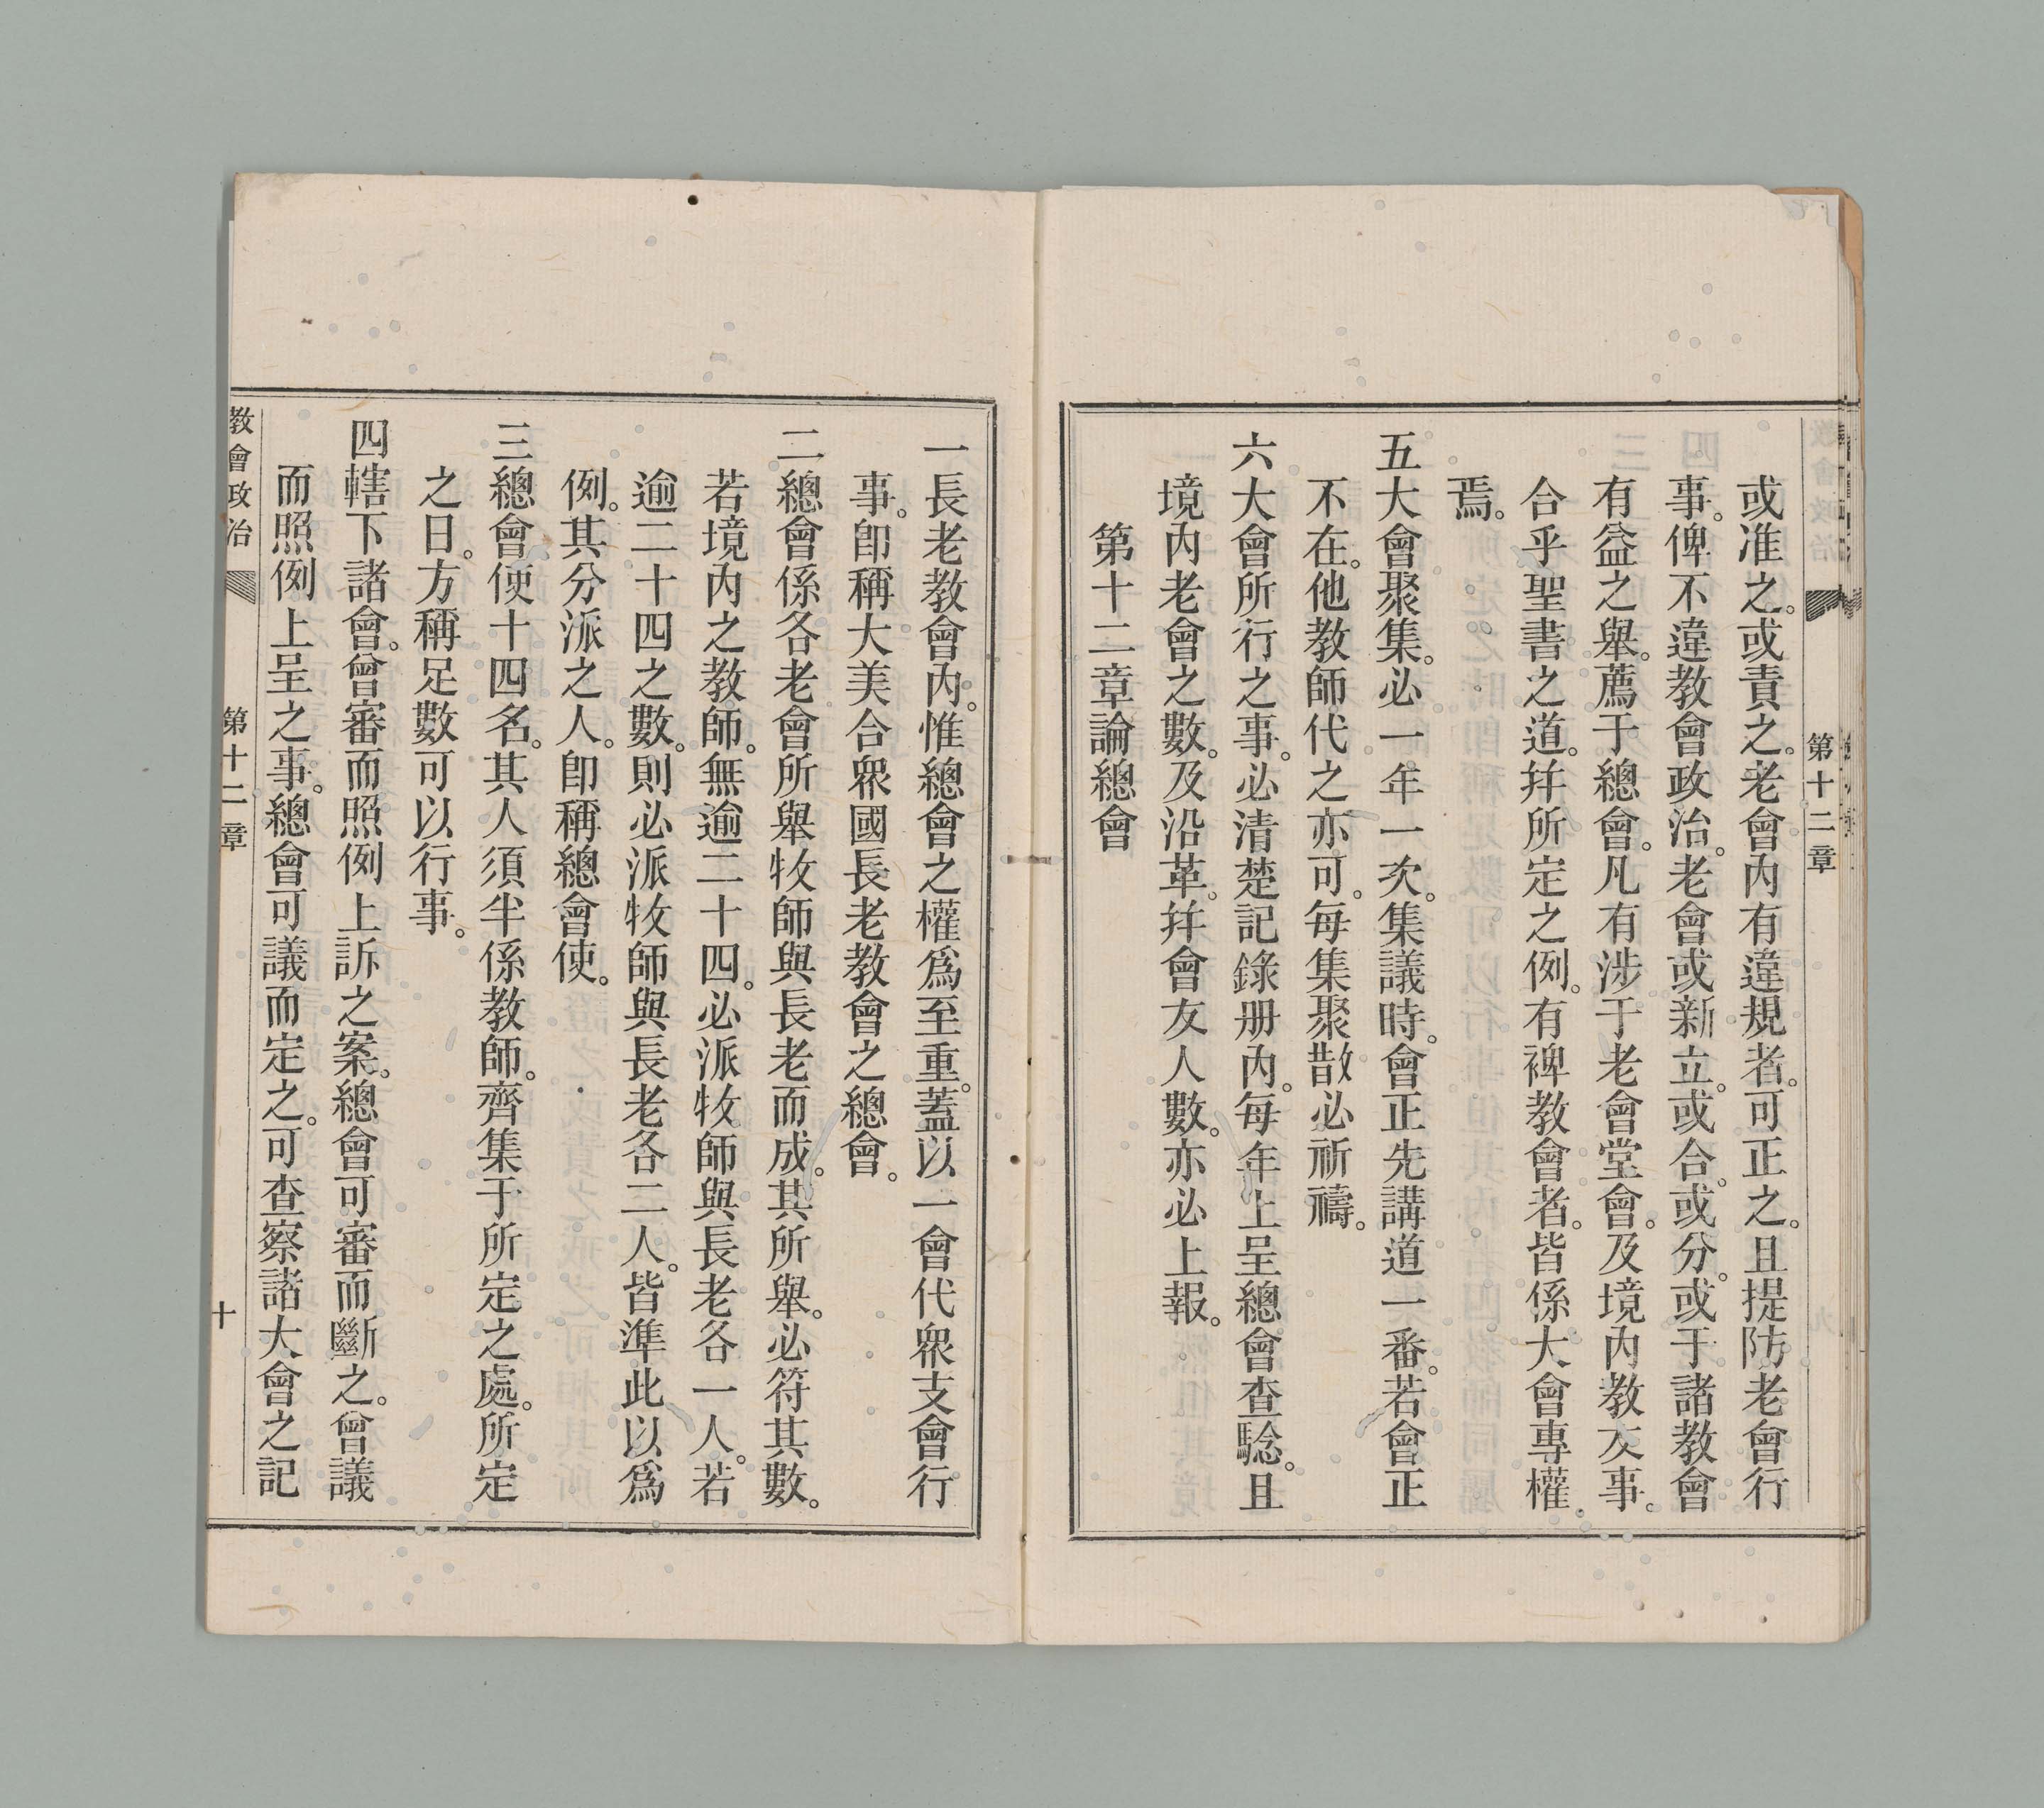 或准之。或責之。老會內有違規者。可正之。且提防老會行
事。俾不違教會政治。老會或新立。或合。或分。或于諸教會
有益之舉。薦于總會。凡有涉于老會堂會。及境內教友事。
合乎聖書之道。并所定之例。有裨教會者。皆係大會專權
焉。
五大會聚集。必一年一次。集議時。會正先講道一番。若會正
不在。他教師代之亦可。每集聚散必祈禱。
六大會所行之事。必清楚記錄册內。每年上呈總會查騐。且
境內老會之數。及沿革。并會友人數。亦必上報。
第十二章論總會
第十二章
一長老教會內。惟總會之權爲至重。蓋以一會代衆支會行
事。卽稱大美合衆國長老教會之總會。
二總會係各老會所舉牧師與長老而成。其所舉。必符其數。
若境內之教師。無逾二十四。必派牧師與長老各一人。若
逾二十四之數。則必派牧師與長老各二人。皆準此以爲
例。其分派之人。卽稱總會使。
三總會使十四名。其人須半係教師。齊集于所定之處。所定
之日。方稱足數可以行事。
四轄下諸會。曾審而照例上訴之案。總會可審而斷之。曾議
而照例上呈之事。總會可議而定之。可查察諸大會之記
教會政治
第十二章
十